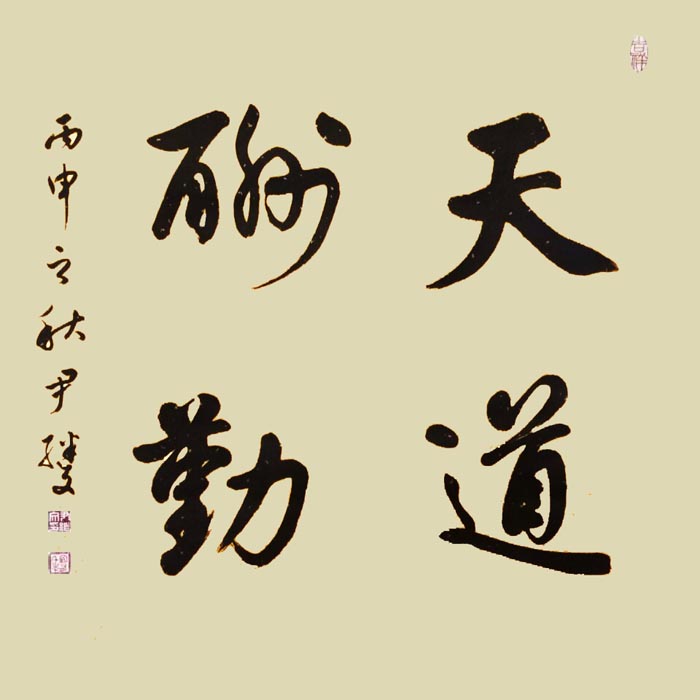 天道
酬勤
丙申之秋尹
吉祥